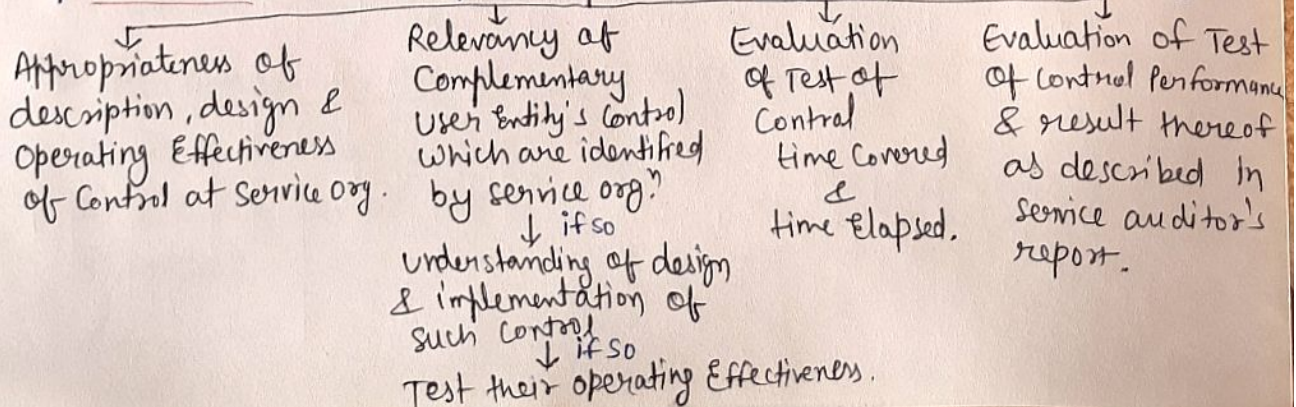 Appropriateness of
description, design &
Operating Effectiveness
of Control at Service org.
Relevancy of
Complementary
User Entity's Control
which are identified
by service orgⁿ
↓ if so
understanding of design
& implementation of
such control
↓ if so
Test their operating Effectiveness.
Evaluation
of Test of
Control
time Covered
&
time Elapsed.
Evaluation of Test
of Control Performance
& result thereof
as described in
service auditor's
report.